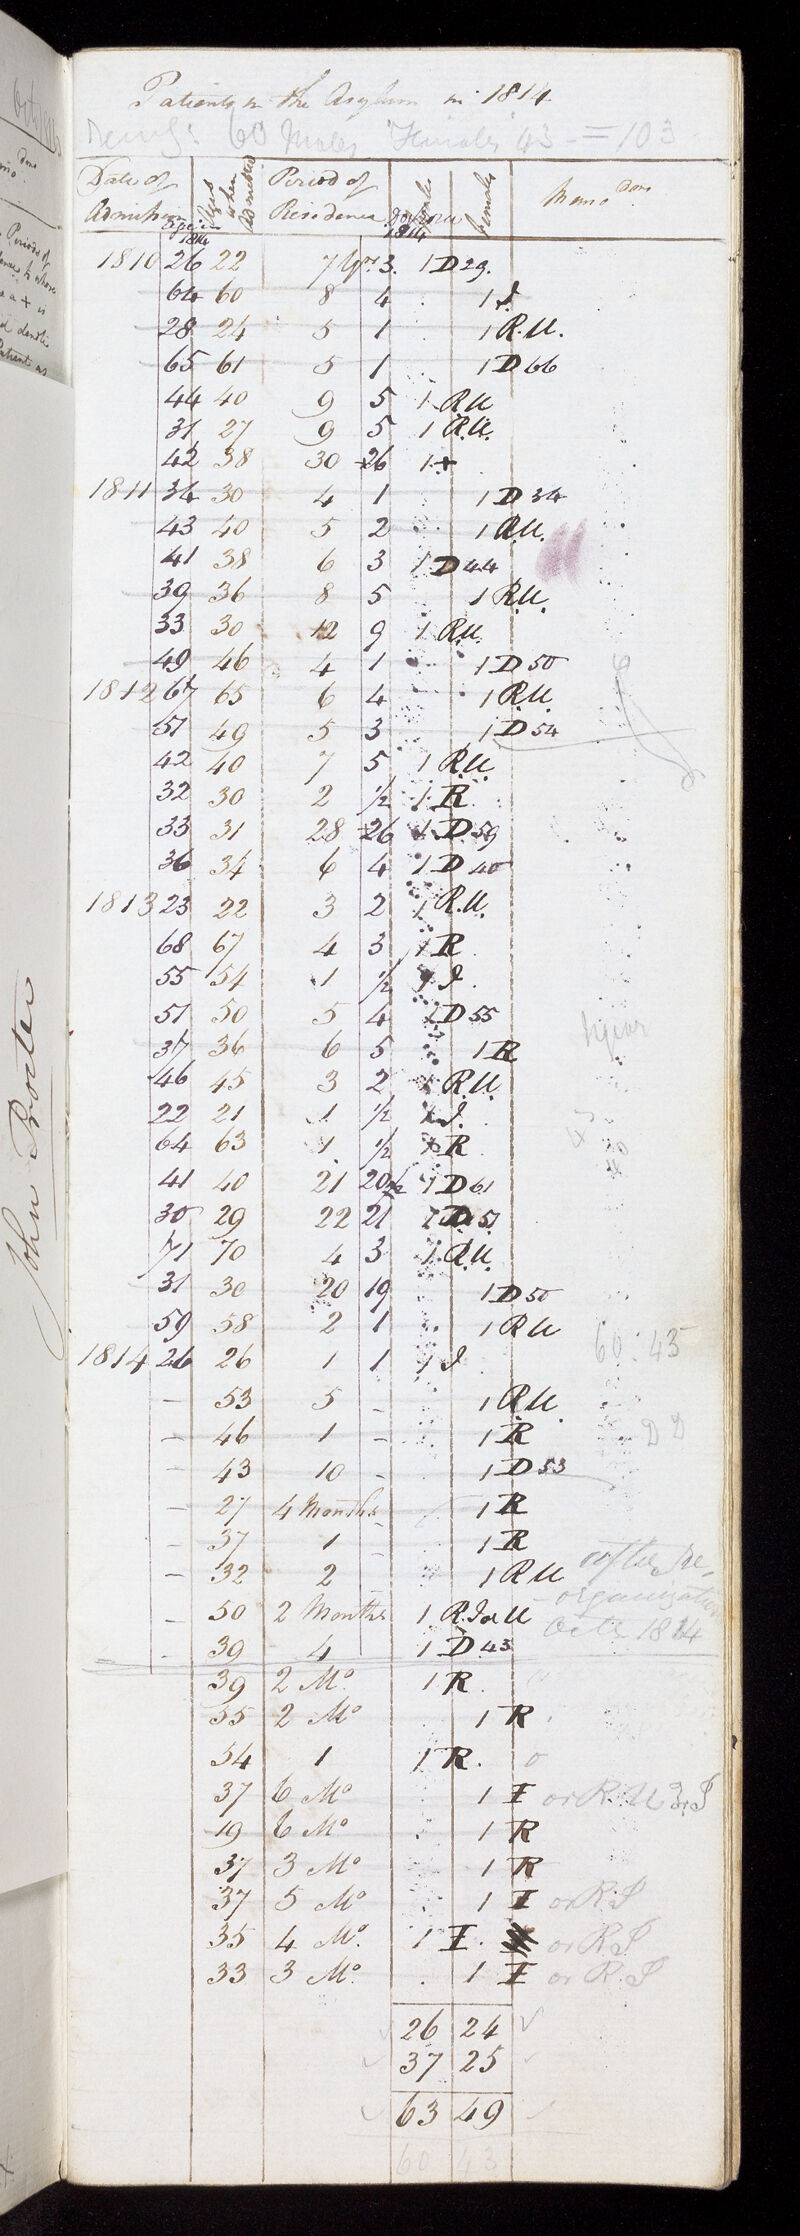 Patients in the Asylum in 1814.
60 Males Females 43 = 103
Date of Admission
Age in 1814
Ages when Admitted
Period of Residence
1814
Males
Females
Memodms
1810 26 22 7 Yrs 3. 1 D 29.
64 60 8 4 1 I
28 24 5 1 1 R.U.
65 61 5 1 1 D 66
44 40 9 5 1 R.U
31 27 9 5 1 R.U.
42 38 30 26 1 +
1811 34 30 4 1 1 D 34
43 40 5 2 1 R.U.
41 38 6 3 1 D 44
39 36 8 5 1 R.U.
33 30 12 9 1 R.U.
49 46 4 1 1 D 50
1812 67 65 6 4 1 R.U.
51 49 5 3 1 D 54
42 40 7 5 1 R.U.
32 30 2 1/2 1 R
33 31 28 26 1 D 59
36 34 6 4 1 D 40
1813 23 22 3 2 1 R.U.
68 67 4 3 1 R
55 54 1 1/2 1 I.
51 50 5 4 1 D 55
37 36 6 5 1 R
46 45 3 2 1 R.U.
22 21 1 1/2 1 I.
64 63 1 1/2 1 R
41 40 21 20 1/2 1 D 61
30 29 22 21 1 D 51
71 70 4 3 1 R.U.
31 30 20 19 1 D 50
59 58 2 1 1 R U
60 : 43
1814 26 26 1 1 1 I
– 53 5 – 1 R.U.
– 46 1 – 1 R
D D
– 43 10 – 1 D 53
– 27 4 Months 1 R
– 37 1 – 1 R
– 32 2 – 1 R U
after re-organization Octr 1814
– 50 2 Months 1 R. I or U
– 39 4 1 D 43
39 2 Mo 1 R
55 2 Mo 1 R
54 1 1 R. o
37 6 Mo 1 I or R. U or I
19 6 Mo 1 R
37 3 Mo 1 R
37 5 Mo 1 I or R. I
35 4 Mo. 1 I. or R I
33 3 Mo. 1 I or R. I
26 24
37 25
63 49
60 43
John Procter